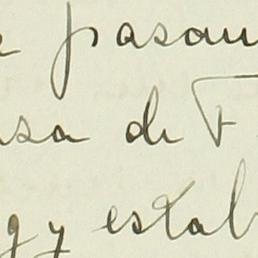 pasan
sa de F
g y estab